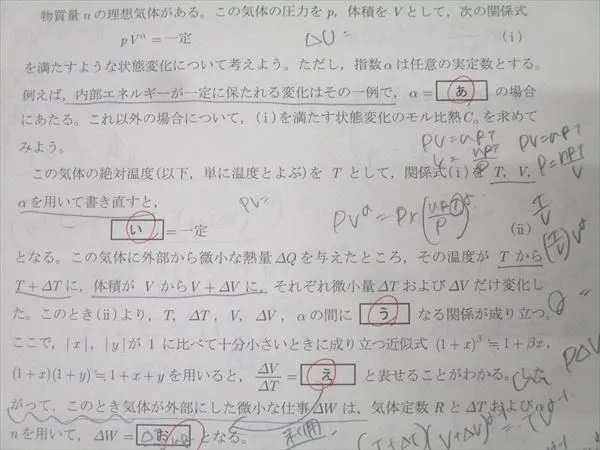 物質量 n の理想気体がある。この気体の圧力を p, 体積を V として, 次の関係式
pV^α = 一定 ΔU= (i)
を満たすような状態変化について考えよう。ただし, 指数 α は任意の実定数とする。
例えば, 内部エネルギーが一定に保たれる変化はその一例で, α = あ の場合
にあたる。これ以外の場合について, (i)を満たす状態変化のモル比熱 C_α を求めて
みよう。
PV=nRT
この気体の絶対温度(以下, 単に温度とよぶ)を T として, 関係式(i)を T, V,
α を用いて書き直すと, PV=
い = 一定 (ii)
となる。この気体に外部から微小な熱量 ΔQ を与えたところ, その温度が T から
T + ΔT に, 体積が V から V + ΔV に, それぞれ微小量 ΔT および ΔV だけ変化し
た。このとき(ii)より, T, ΔT, V, ΔV, α の間に う なる関係が成り立つ。
ここで, |x|, |y| が 1 に比べて十分小さいときに成り立つ近似式 (1+x)^β ≒ 1+βx,
(1+x)(1+y) ≒ 1+x+y を用いると, ΔV/ΔT = え と表せることがわかる。した
がって, このとき気体が外部にした微小な仕事 ΔW は, 気体定数 R と ΔT および α
n を用いて, ΔW = お となる。